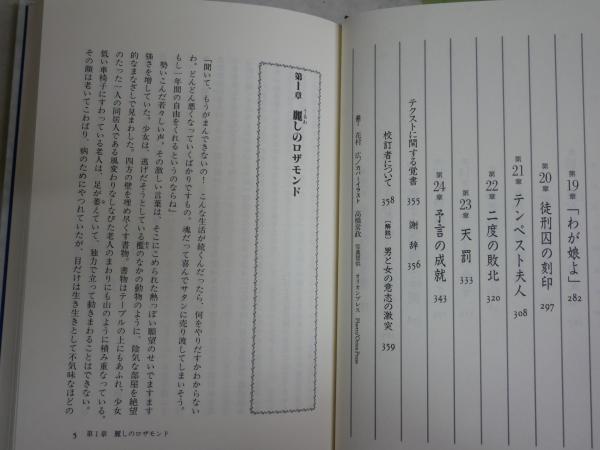 第19章 「わが娘よ」 282
第20章 徒刑囚の刻印 297
第21章 テンペスト夫人 308
第22章 二度の敗北 320
第23章 天罰 333
第24章 予言の成就 343
テクストに関する覚書 355 謝辞 356
校訂者について 358 〔解説〕 男と女の意志の激突 359
第1章 麗しのロザモンド
うるわ
「聞いて、もうがまんできないの! こんな生活が続くんだったら、何をやりだすかわからない
わ。どんどん悪くなっていくばかりですもの。魂だって喜んでサタンに売り渡してしまいそう。
もし一年間の自由をくれるというのならね」
勢いこんだ若々しい声。その激しい言葉は、そこにこめられた熱っぽい願望のせいでますます
強さを増していた。少女は、逃げだそうとしている檻のなかの動物のように、陰気な部屋を絶望
的なまなざしで見まわした。四方の壁を埋め尽くす書物。書物はテーブルの上にもあふれ、少女
のたった一人の同居人である風変わりなしなびた老人のまわりにも山のように積み重なっている。
低い車椅子にすわっている老人は、足が萎えていて、独力で立って動きまわることはできない。
その顔は老いてこわばり、病のためにやつれていたが、目だけは生き生きとして不気味なほどの
5 第1章 麗しのロザモンド